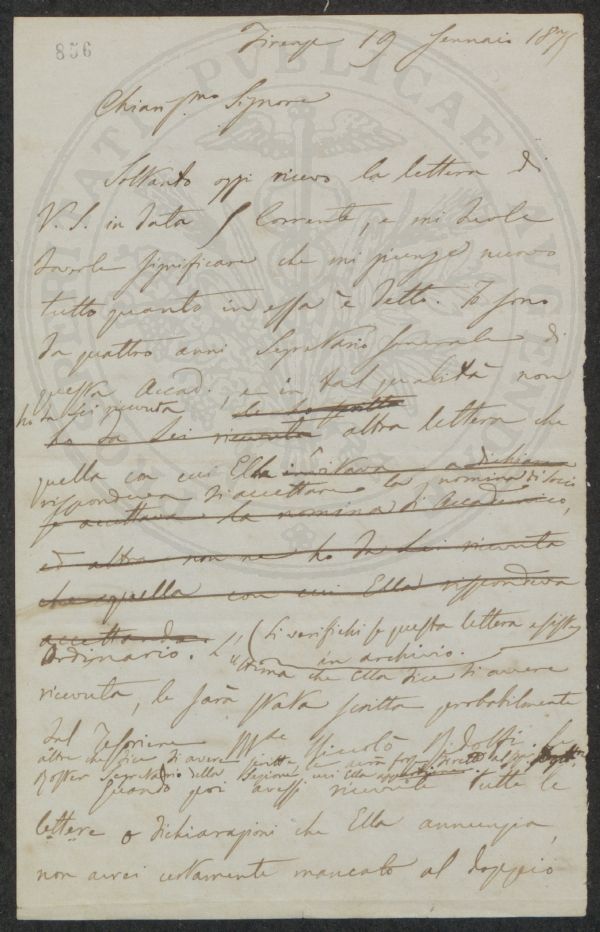 856
Firenze 19 Gennaio 1875
Chiariss.mo Signore
Soltanto oggi ricevo la lettera di
V. S. in data 5 Corrente, e mi duole
doverle significare che mi giunge nuovo
tutto quanto in essa è detto. Io sono
da quattro anni Segretario Generale di
questa Accad., e in tal qualità non
ho da Lei ricevuta
ho da Lei ricevuta altra lettera che
quella con cui Ella invitava a dichiarare
rispondeva di accettare la nomina di Socio
se accettava la nomina di Accademico,
ed altra non ne ho da Lei ricevuta
che quella con cui Ella rispondeva
accettando.
Ordinario. (Si verifichi se questa lettera esiste
in archivio.
L'ultima che Ella dice di avere
ricevuta, le sarà stata scritta probabilmente
dal Tesoriere March. Niccolò Ridolfi. Le
altre che dice di avere scritte, le avrà forse dirette al
Segretario della Sezione cui Ella
quando poi avessi ricevute tutte le
lettere o dichiarazioni che Ella annunzia,
non avrei certamente mancato al doppio